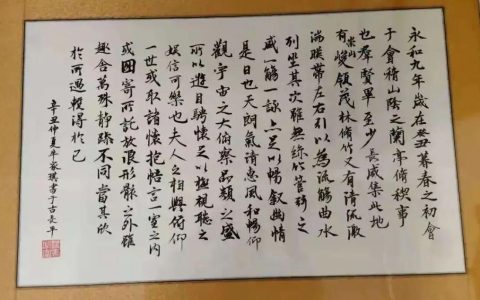 永和九年歲在癸丑暮春之初會
于會稽山陰之蘭亭脩稧事
也羣賢畢至少長咸集此地
有崇山峻領茂林脩竹又有清流激
湍暎帶左右引以為流觴曲水
列坐其次雖無絲竹管弦之
盛一觴一詠亦足以暢叙幽情
是日也天朗氣清惠風和暢仰
觀宇宙之大俯察品類之盛
所以遊目騁懷足以極視聽之
娛信可樂也夫人之相與俯仰
一世或取諸懷抱悟言一室之內
或因寄所託放浪形骸之外雖
趣舍萬殊靜躁不同當其欣
於所遇暫得於己
辛丑仲夏牛家琪書于古長平